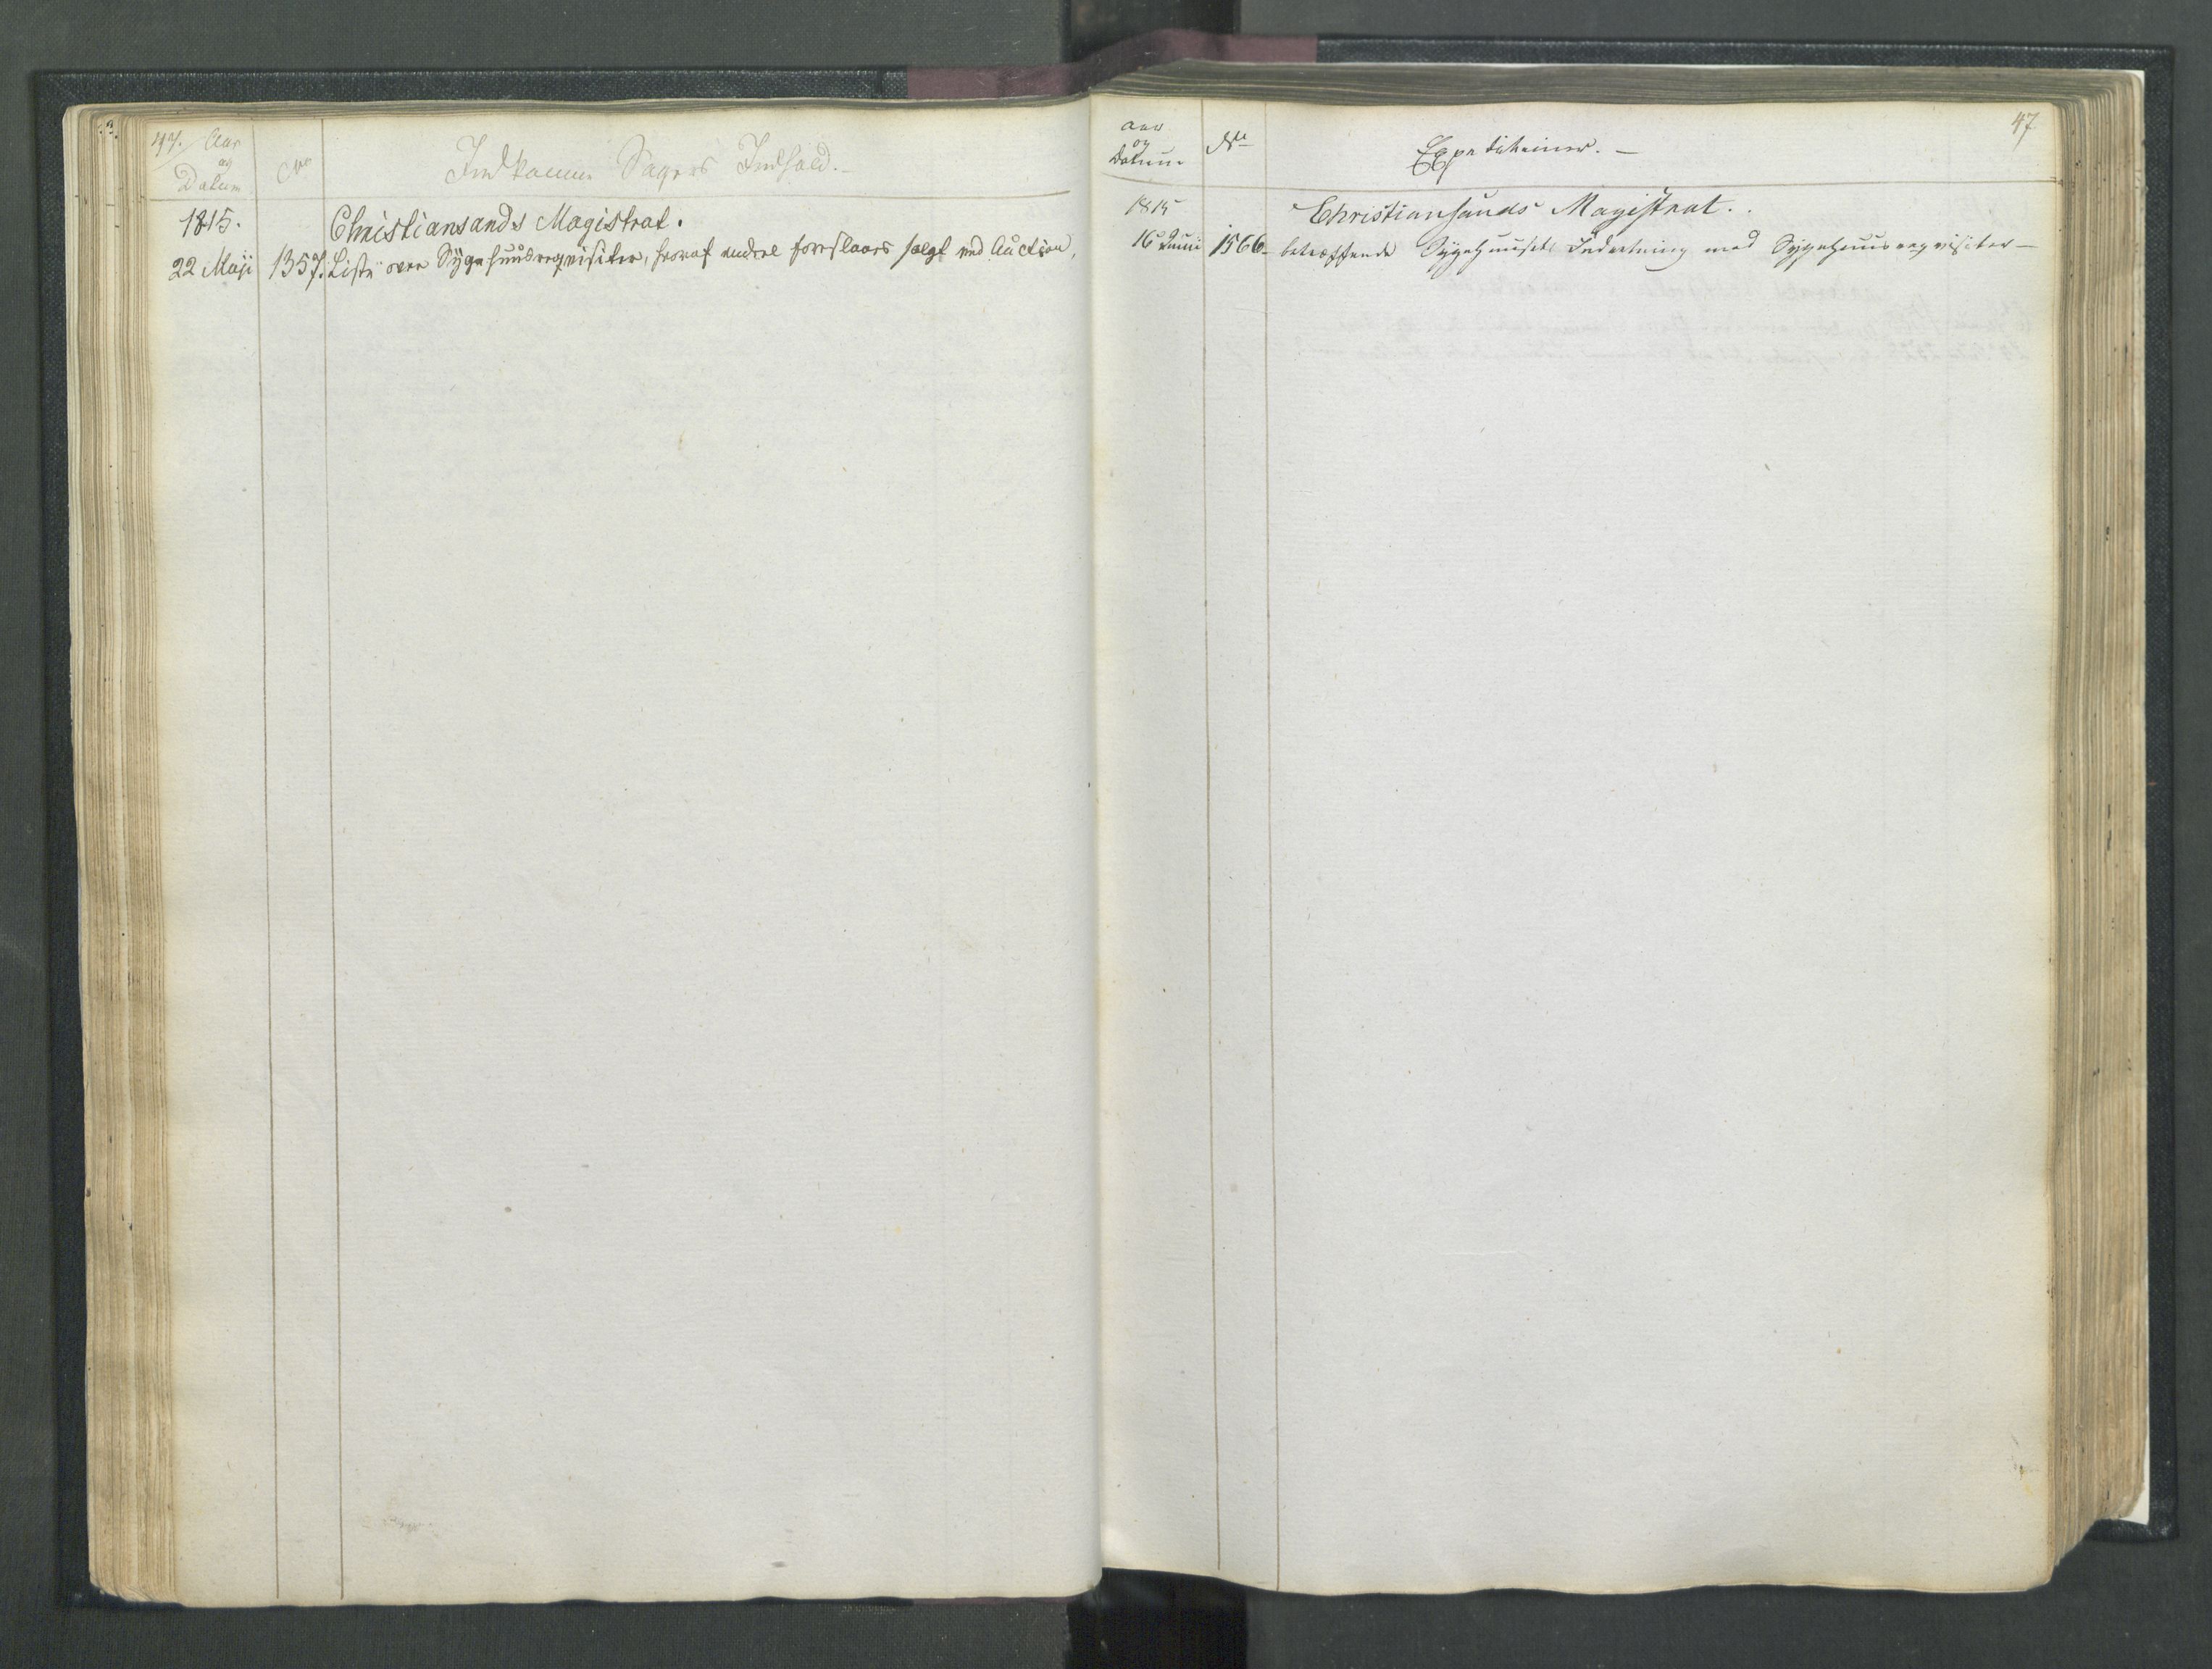 47. Aar
og
Datum
No
Indkomne Sagers Indhold.-
1815.
Christiansands Magistrat.
22 Maji 1357. Liste over Sygehuusreqvisiter, hvoraf endeel foreslaaes solgt ved Auction,
Aar
og
Datum
No
Expeditioner. -
47
1815
Christiansands Magistrat.
16 Junii 1566 - betræffende Sygehusets Indretning med Sygehuusreqvisiter -